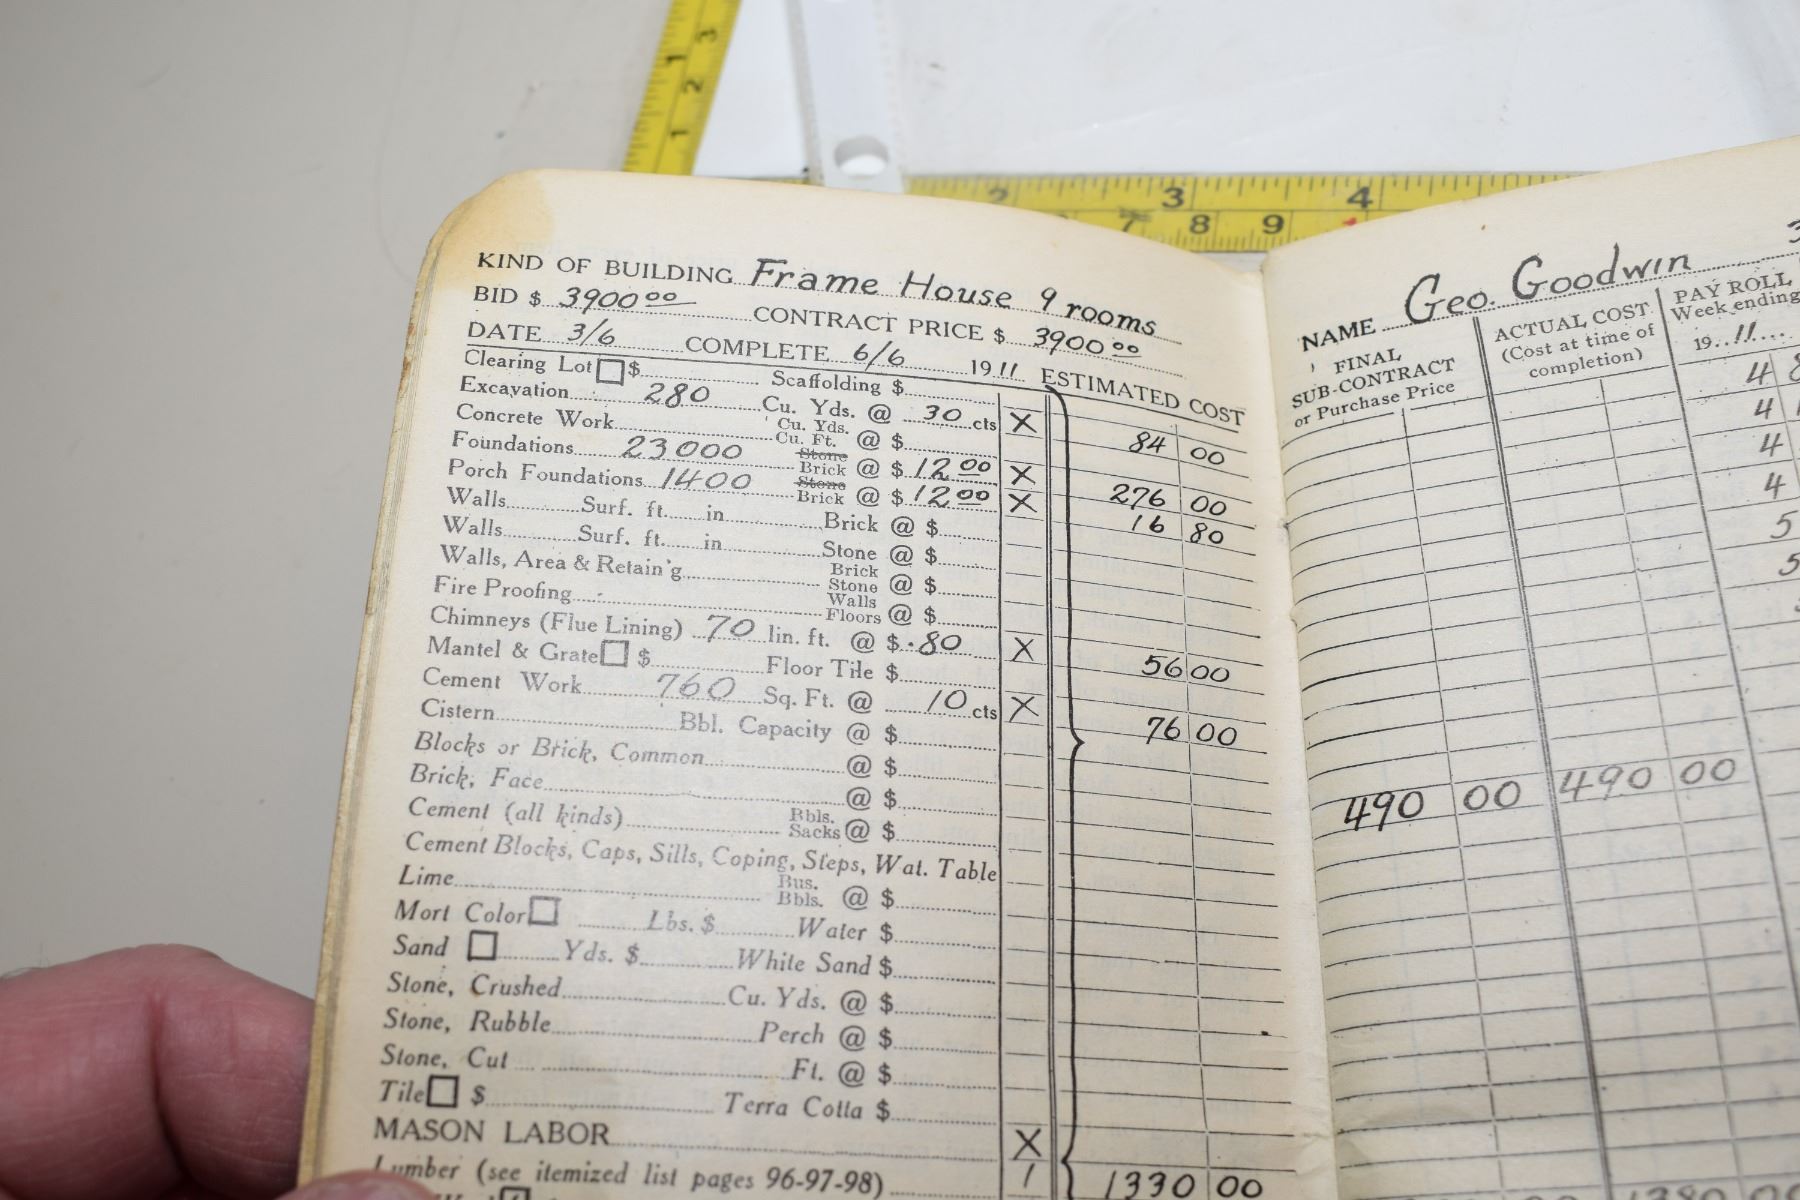 KIND OF BUILDING Frame House 9 rooms
BID $ 3900 00 CONTRACT PRICE $ 3900 00
DATE 3/6 COMPLETE 6/6 1911 ESTIMATED COST
Clearing Lot $ Scaffolding $
Excavation 280 Cu. Yds. @ 30 cts X 84 00
Concrete Work Cu. Yds. Cu. Ft. @ $
Foundations 23000 Stone Brick @ $ 12 00 X 276 00
Porch Foundations 1400 Stone Brick @ $ 12 00 X 16 80
Walls Surf. ft. in Brick @ $
Walls Surf. ft. in Stone @ $
Walls, Area & Retain'g Brick Stone @ $
Fire Proofing Walls Floors @ $
Chimneys (Flue Lining) 70 lin. ft. @ $ .80 X 56 00
Mantel & Grate $ Floor Tile $
Cement Work 760 Sq. Ft. @ 10 cts X 76 00
Cistern Bbl. Capacity @ $
Blocks or Brick, Common @ $
Brick, Face @ $
Cement (all kinds) Bbls. Sacks @ $
Cement Blocks, Caps, Sills, Coping, Steps, Wat. Table
Lime Bus. Bbls. @ $
Mort Color Lbs. $ Water $
Sand Yds. $ White Sand $
Stone, Crushed Cu. Yds. @ $
Stone, Rubble Perch @ $
Stone, Cut Ft. @ $
Tile $ Terra Cotta $
MASON LABOR X
Lumber (see itemized list pages 96-97-98) 1 1330 00
NAME Geo. Goodwin
FINAL SUB-CONTRACT or Purchase Price
ACTUAL COST (Cost at time of completion)
PAY ROLL Week ending 19 11
4 8
4
4
4
5
5
490 00 490 00
1 2 3 1
2 3 4
7 8 9